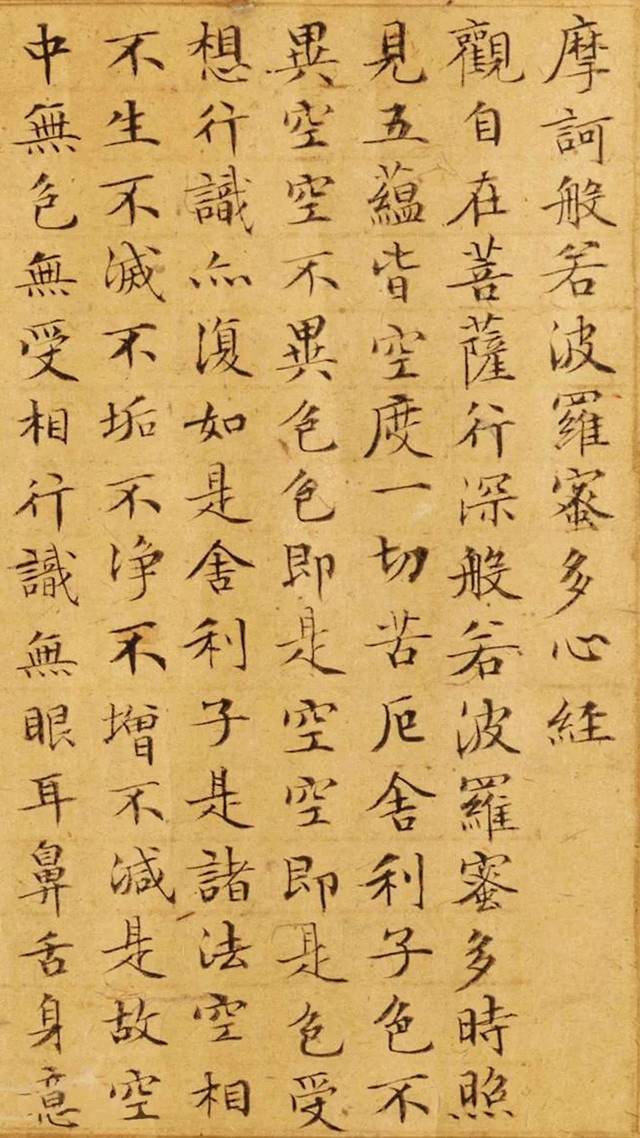 摩訶般若波羅蜜多心經
觀自在菩薩行深般若波羅蜜多時照
見五蘊皆空度一切苦厄舍利子色不
異空空不異色色即是空空即是色受
想行識亦復如是舍利子是諸法空相
不生不滅不垢不净不增不減是故空
中無色無受相行識無眼耳鼻舌身意